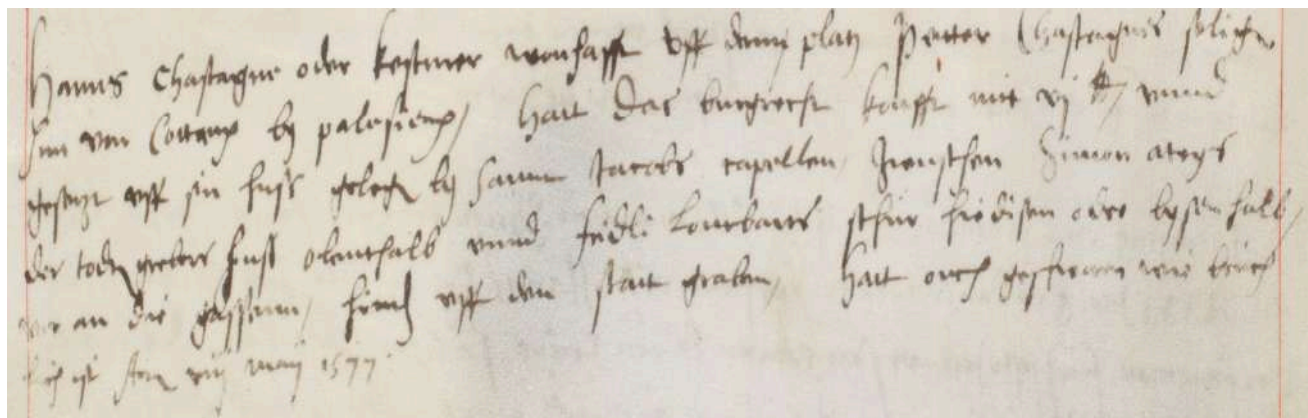 Hanns Chastagne oder kestiner wonhafft uff dem platz Peter Chastagnis seligen
sun von Cottens by palesieux, hatt das burgrecht koufft mit vj lb, unnd
gesetzt uff sin huss gelegen by Sannt Jacobs capellen, zwuschen Simon
der todtengrebers huss obenthalb unnd fridli Lombarts schür hiedisen oder bysenhalb,
vor an die gassenn, hinden uff den statt graben, hatt ouch geschworen wie brüch
lich ist Actum viij maij 1577